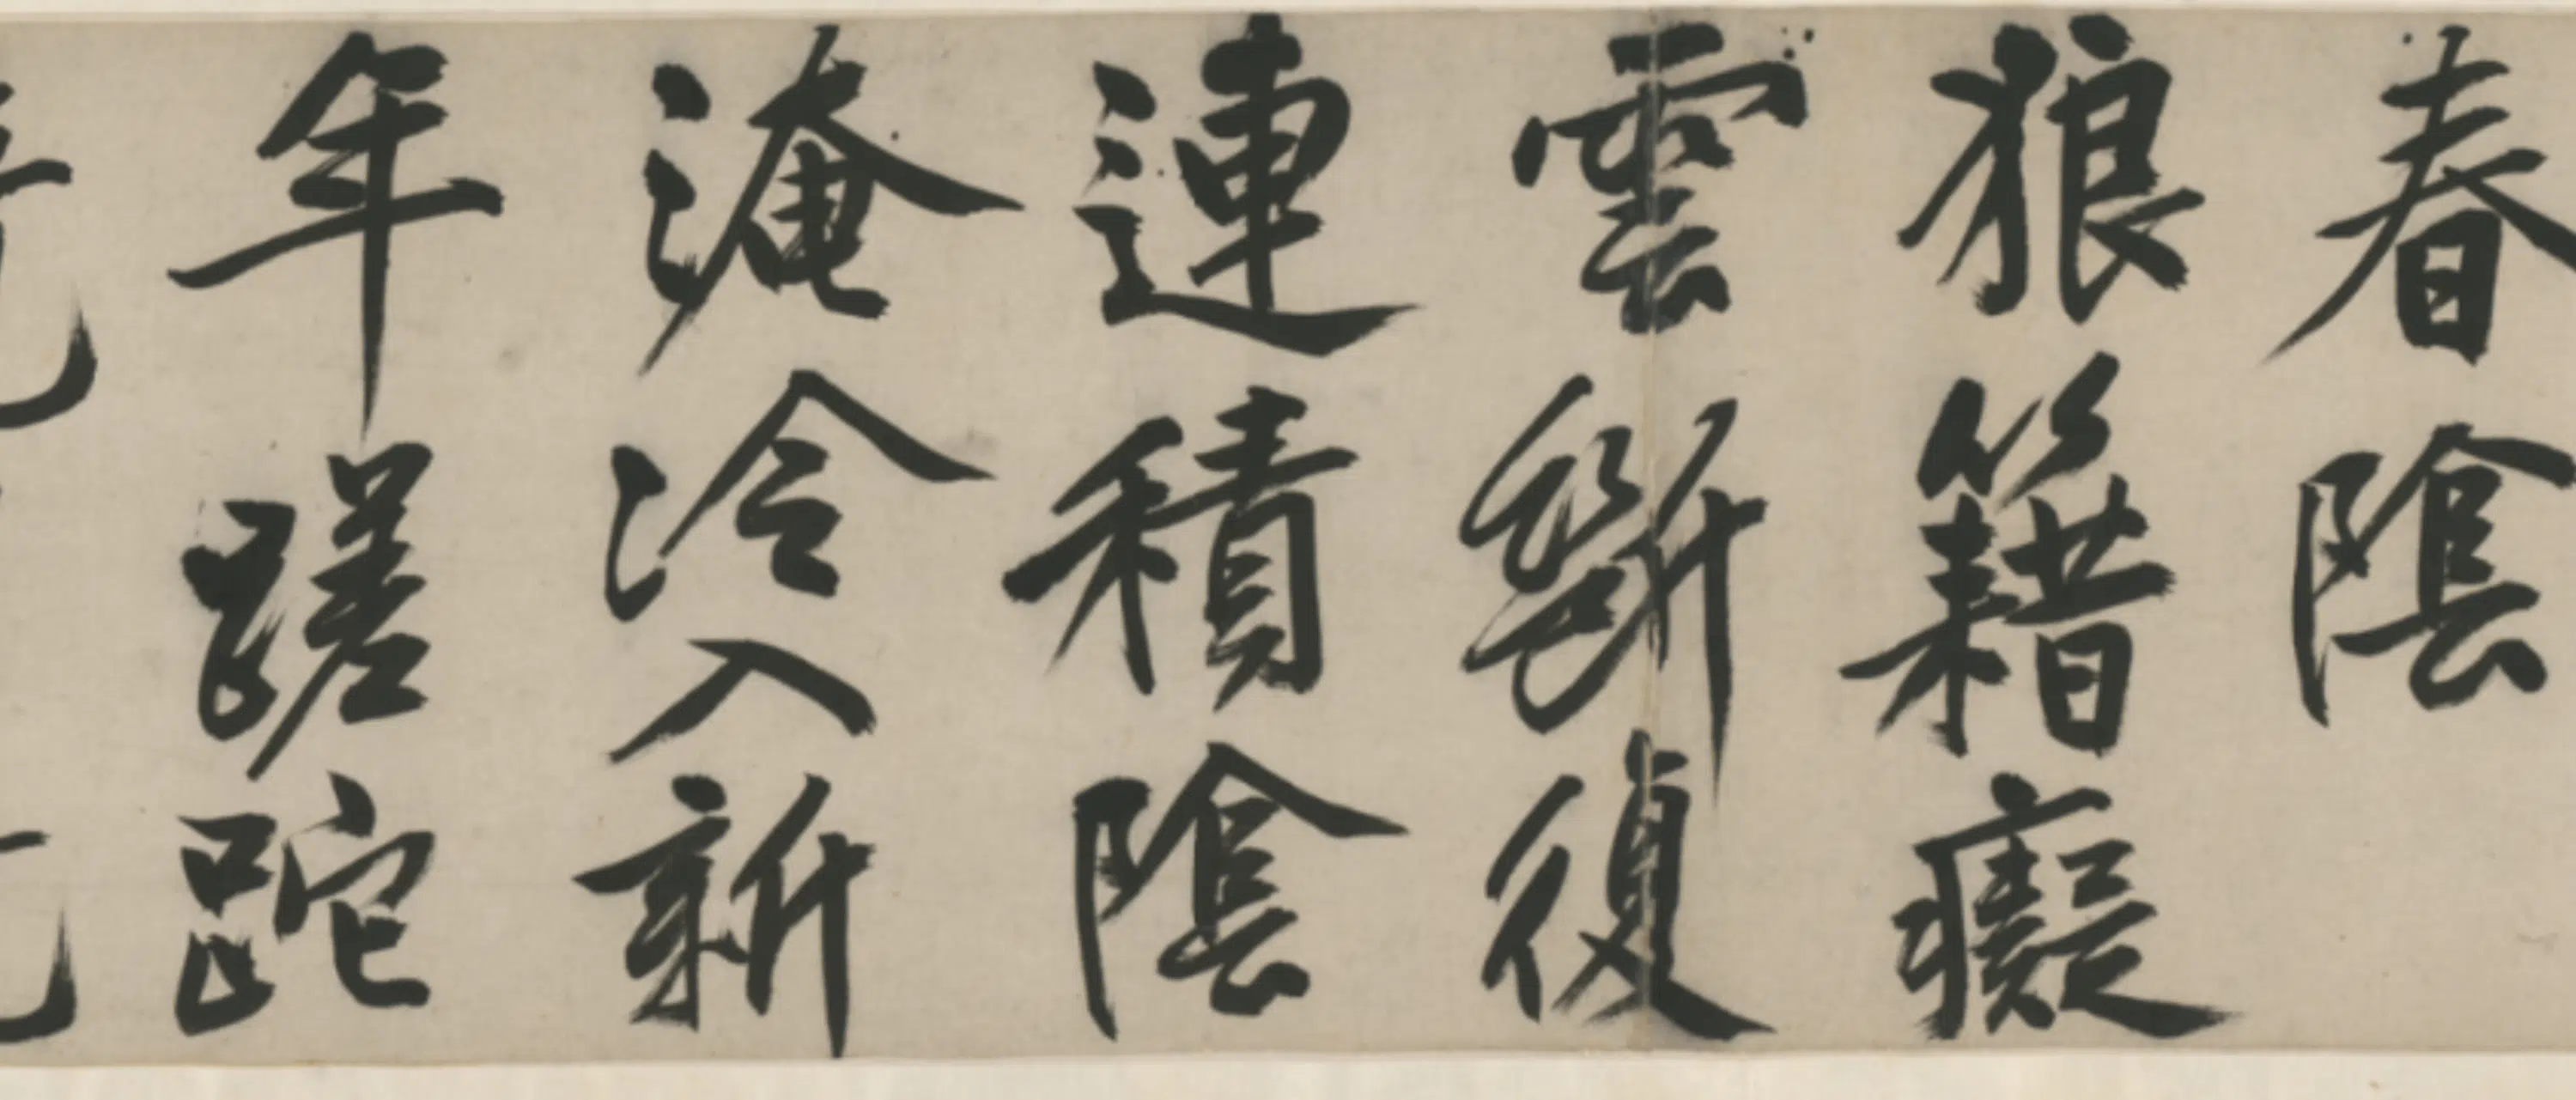 春陰
狼籍癡
雲斷復
連積陰
淹冷入新
年蹉跎